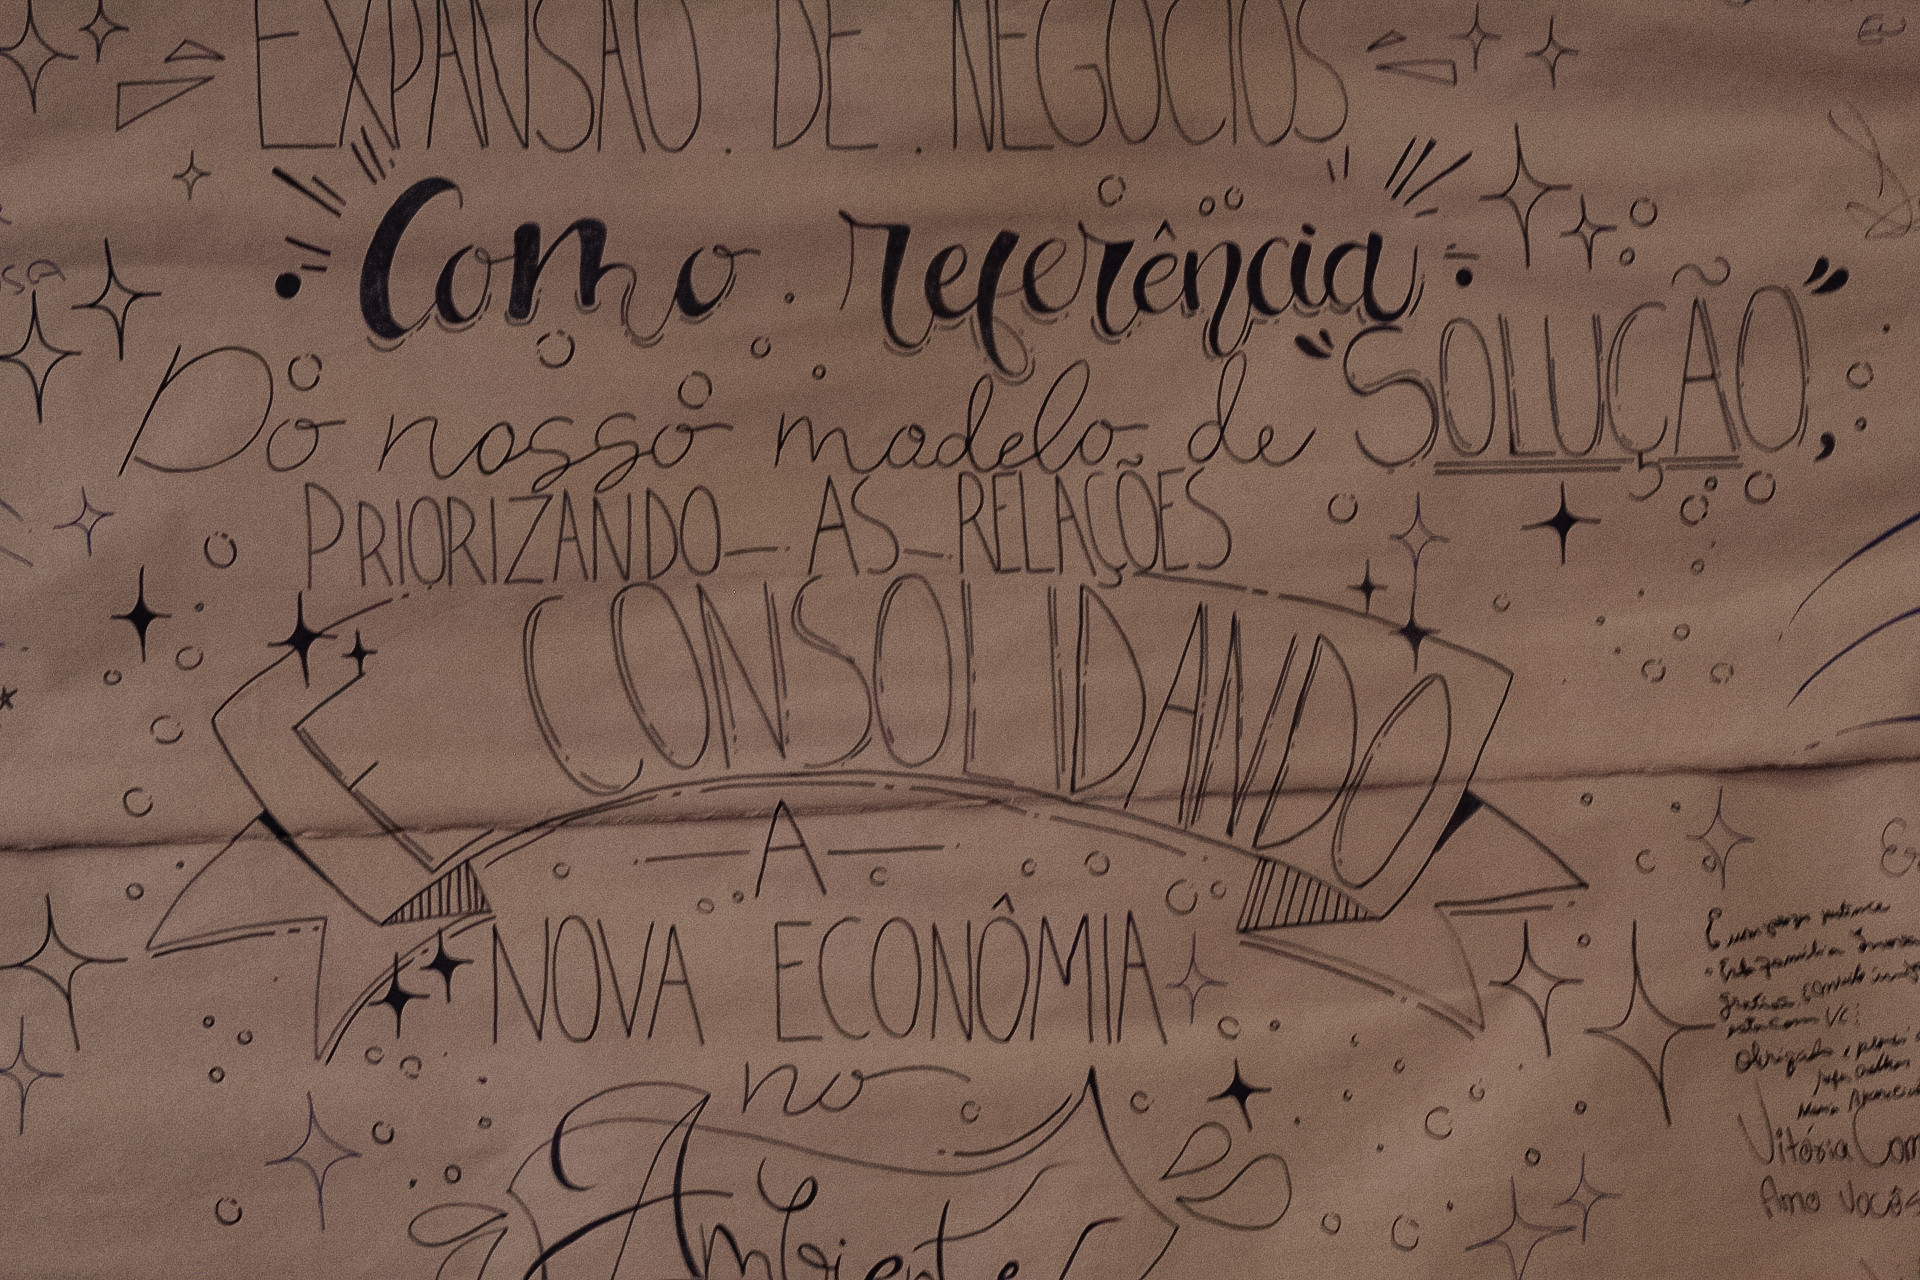 EXPANSÃO . DE . NEGÓCIOS
Como . referência
Do nosso modelo de "SOLUÇÃO,,
PRIORIZANDO - AS - RELAÇÕES
E CONSOLIDANDO
- A -
NOVA ECONÔMIA
no
Ambiente
Vitória Com
Amo vocês